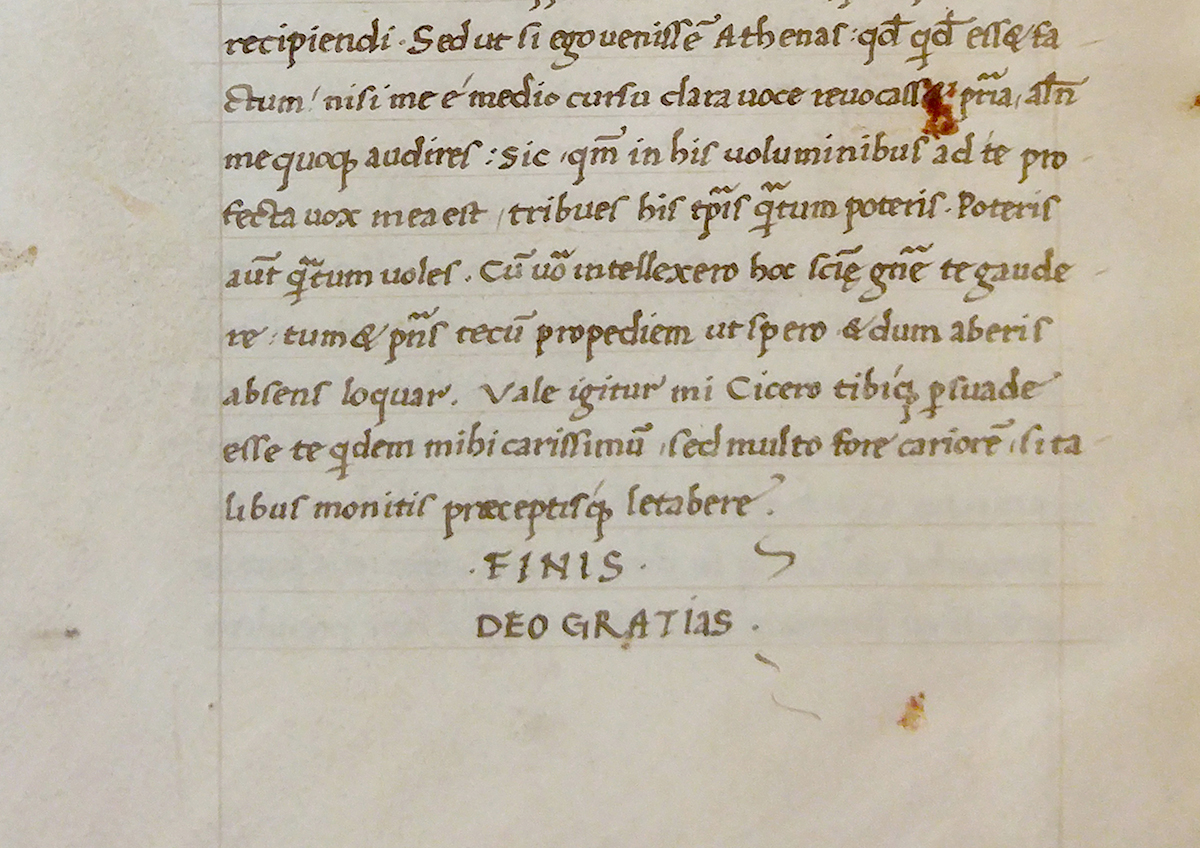 recipiendi · Sed ut si ego venissē Athenas : qđ qđ ess& fa
ctum / nisi me é medio cursu clara voce revocass& pr̃ia, alr̃
me quoqꝫ audires : Sic · qm̃ in his voluminibus ad té pro
fecta vox mea est / tribues his tp̃is qr̃tum poteris · Poteris
aut̃ qr̃tum voles . Cũ vo᷃ intellexero hoc sciẽ gñe te gaude
re : tum & pñs tecũ propediem ut spero & dum aberis
absens loquar . Vale igitur mi Cicero tibíqꝫ ꝑsuade
esse te qdem mihi carissimũ, sed multo fore cariorẽ, si ta
libus monitis præceptisqꝫ letabere .
· FINIS ·
DEO GRATIAS .